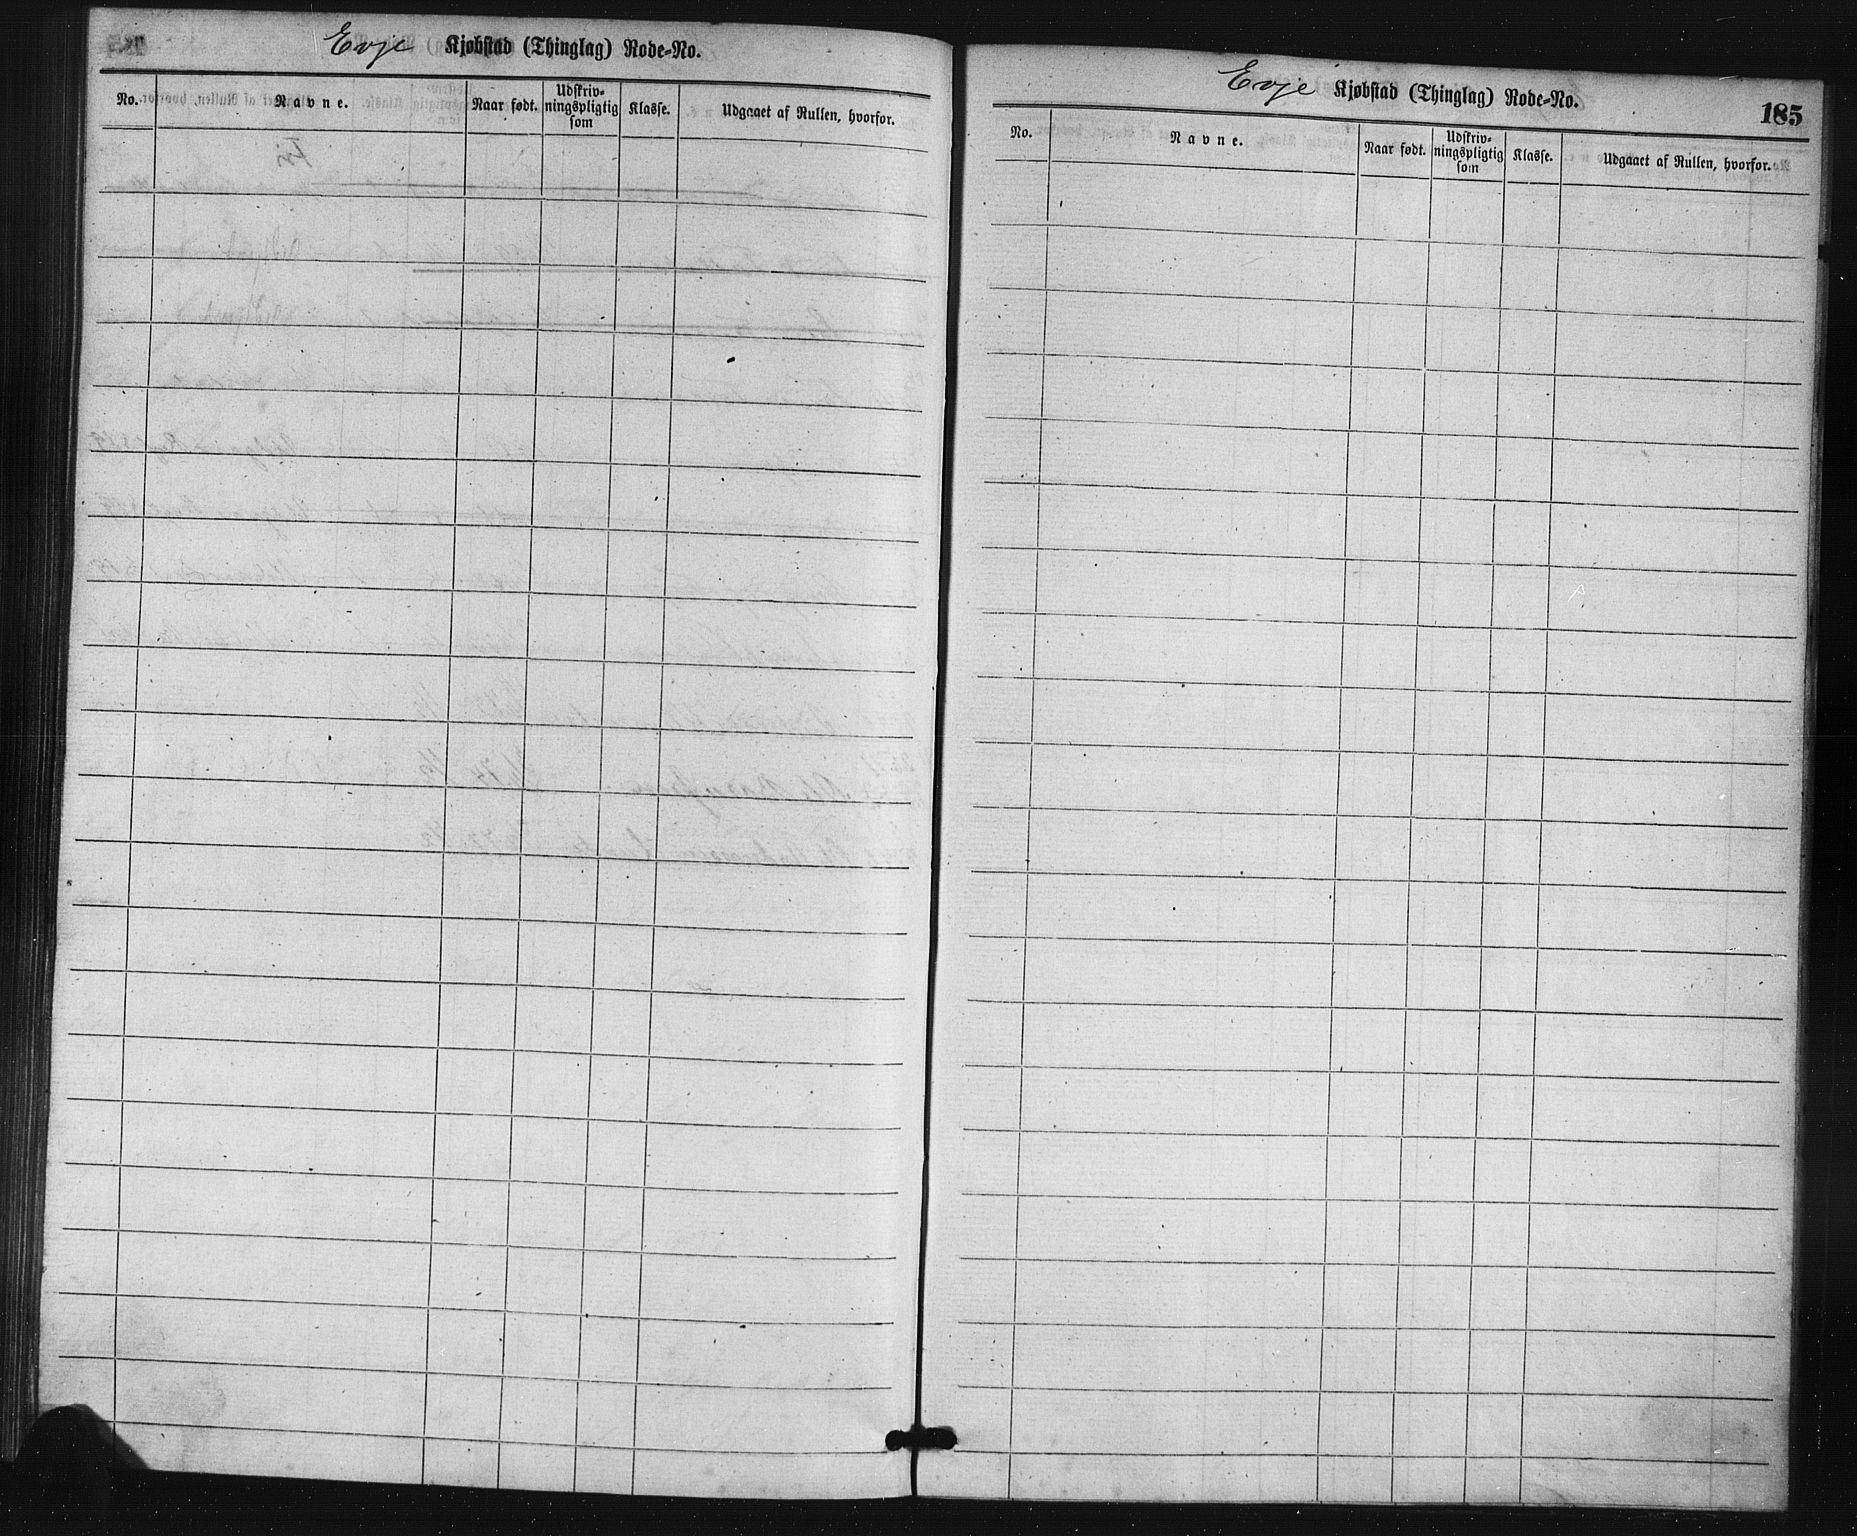 Evje Kjøbstad (Thinglag) Rode-No.
No. Navne. Naar født. Udskriv-
ningspligtig
som Klasse. Udgaaet af Rullen, hvorfor.
Evje Kjøbstad (Thinglag) Rode-No.
185
No. Navne. Naar født. Udskriv-
ningspligtig
som Klasse. Udgaaet af Rullen, hvorfor.